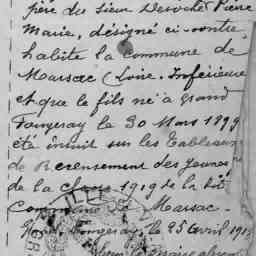 père du sieur Desroché Pierre
Marie, désigné ci-contre
habite la commune de
Marsac (Loire-Inférieure
et que le fils né à Grand
Fougeray le 30 Mars 1899
été inscrit sur les Tableaux
de Recensement des Jeunes
de la classe 1919 de la dite
commune de Marsac
Fougeray, le 25 Avril 191